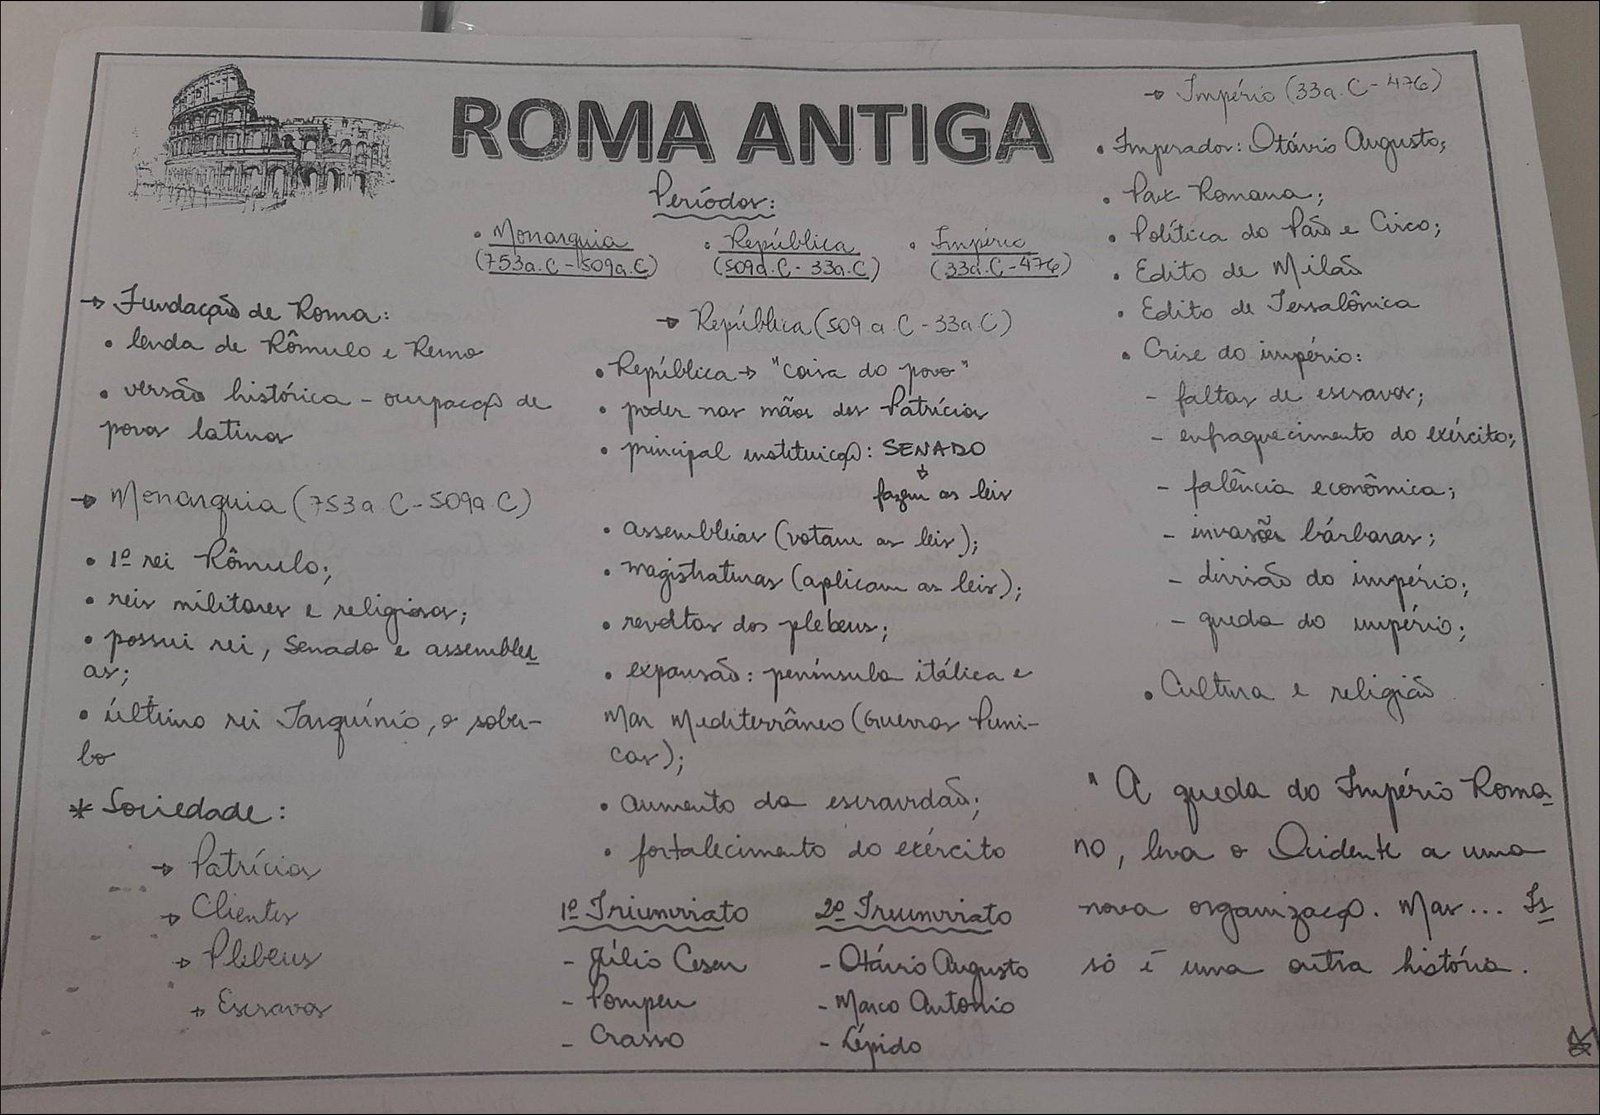 ROMA ANTIGA
Períodos:
• Monarquia
(753a.C - 509a.C)
• República
(509a.C - 33a.C)
• Império
(33a.C - 476)
→ Fundação de Roma:
• lenda de Rômulo e Remo
• versão histórica - ocupação de
povos latinos
→ Monarquia (753a.C - 509a.C)
• 1º rei Rômulo;
• reis militares e religiosos;
• possui rei, Senado e assemblei
as;
• último rei Tarquínio, o sober-
bo
* Sociedade:
→ Patrícios
→ Clientes
→ Plebeus
→ Escravos
→ República (509.a.C - 33a.C)
• República → "coisa do povo"
• poder nas mãos dos Patrícios
• principal instituição: SENADO
↓
fazem as leis
• assembleias (votam as leis);
• magistraturas (aplicam as leis);
• revoltas dos plebeus;
• expansão: península itálica e
Mar Mediterrâneo (Guerras Púni-
cas);
• aumento da escravidão;
• fortalecimento do exército
1º Triunvirato
- Júlio Cesar
- Pompeu
- Crasso
2º Triunvirato
- Otávio Augusto
- Marco Antonio
- Lépido
→ Império (33a.C - 476)
• Imperador: Otávio Augusto;
• Pax Romana;
• Política do Pão e Circo;
• Edito de Milão
• Edito de Tessalônica
• Crise do império:
- faltas de escravos;
- enfraquecimento do exército;
- falência econômica;
- invasões bárbaras;
- divisão do império;
- queda do império;
• Cultura e religião
" A queda do Império Roma-
no, leva o Ocidente a uma
nova organização. Mas... Is
só é uma outra história.